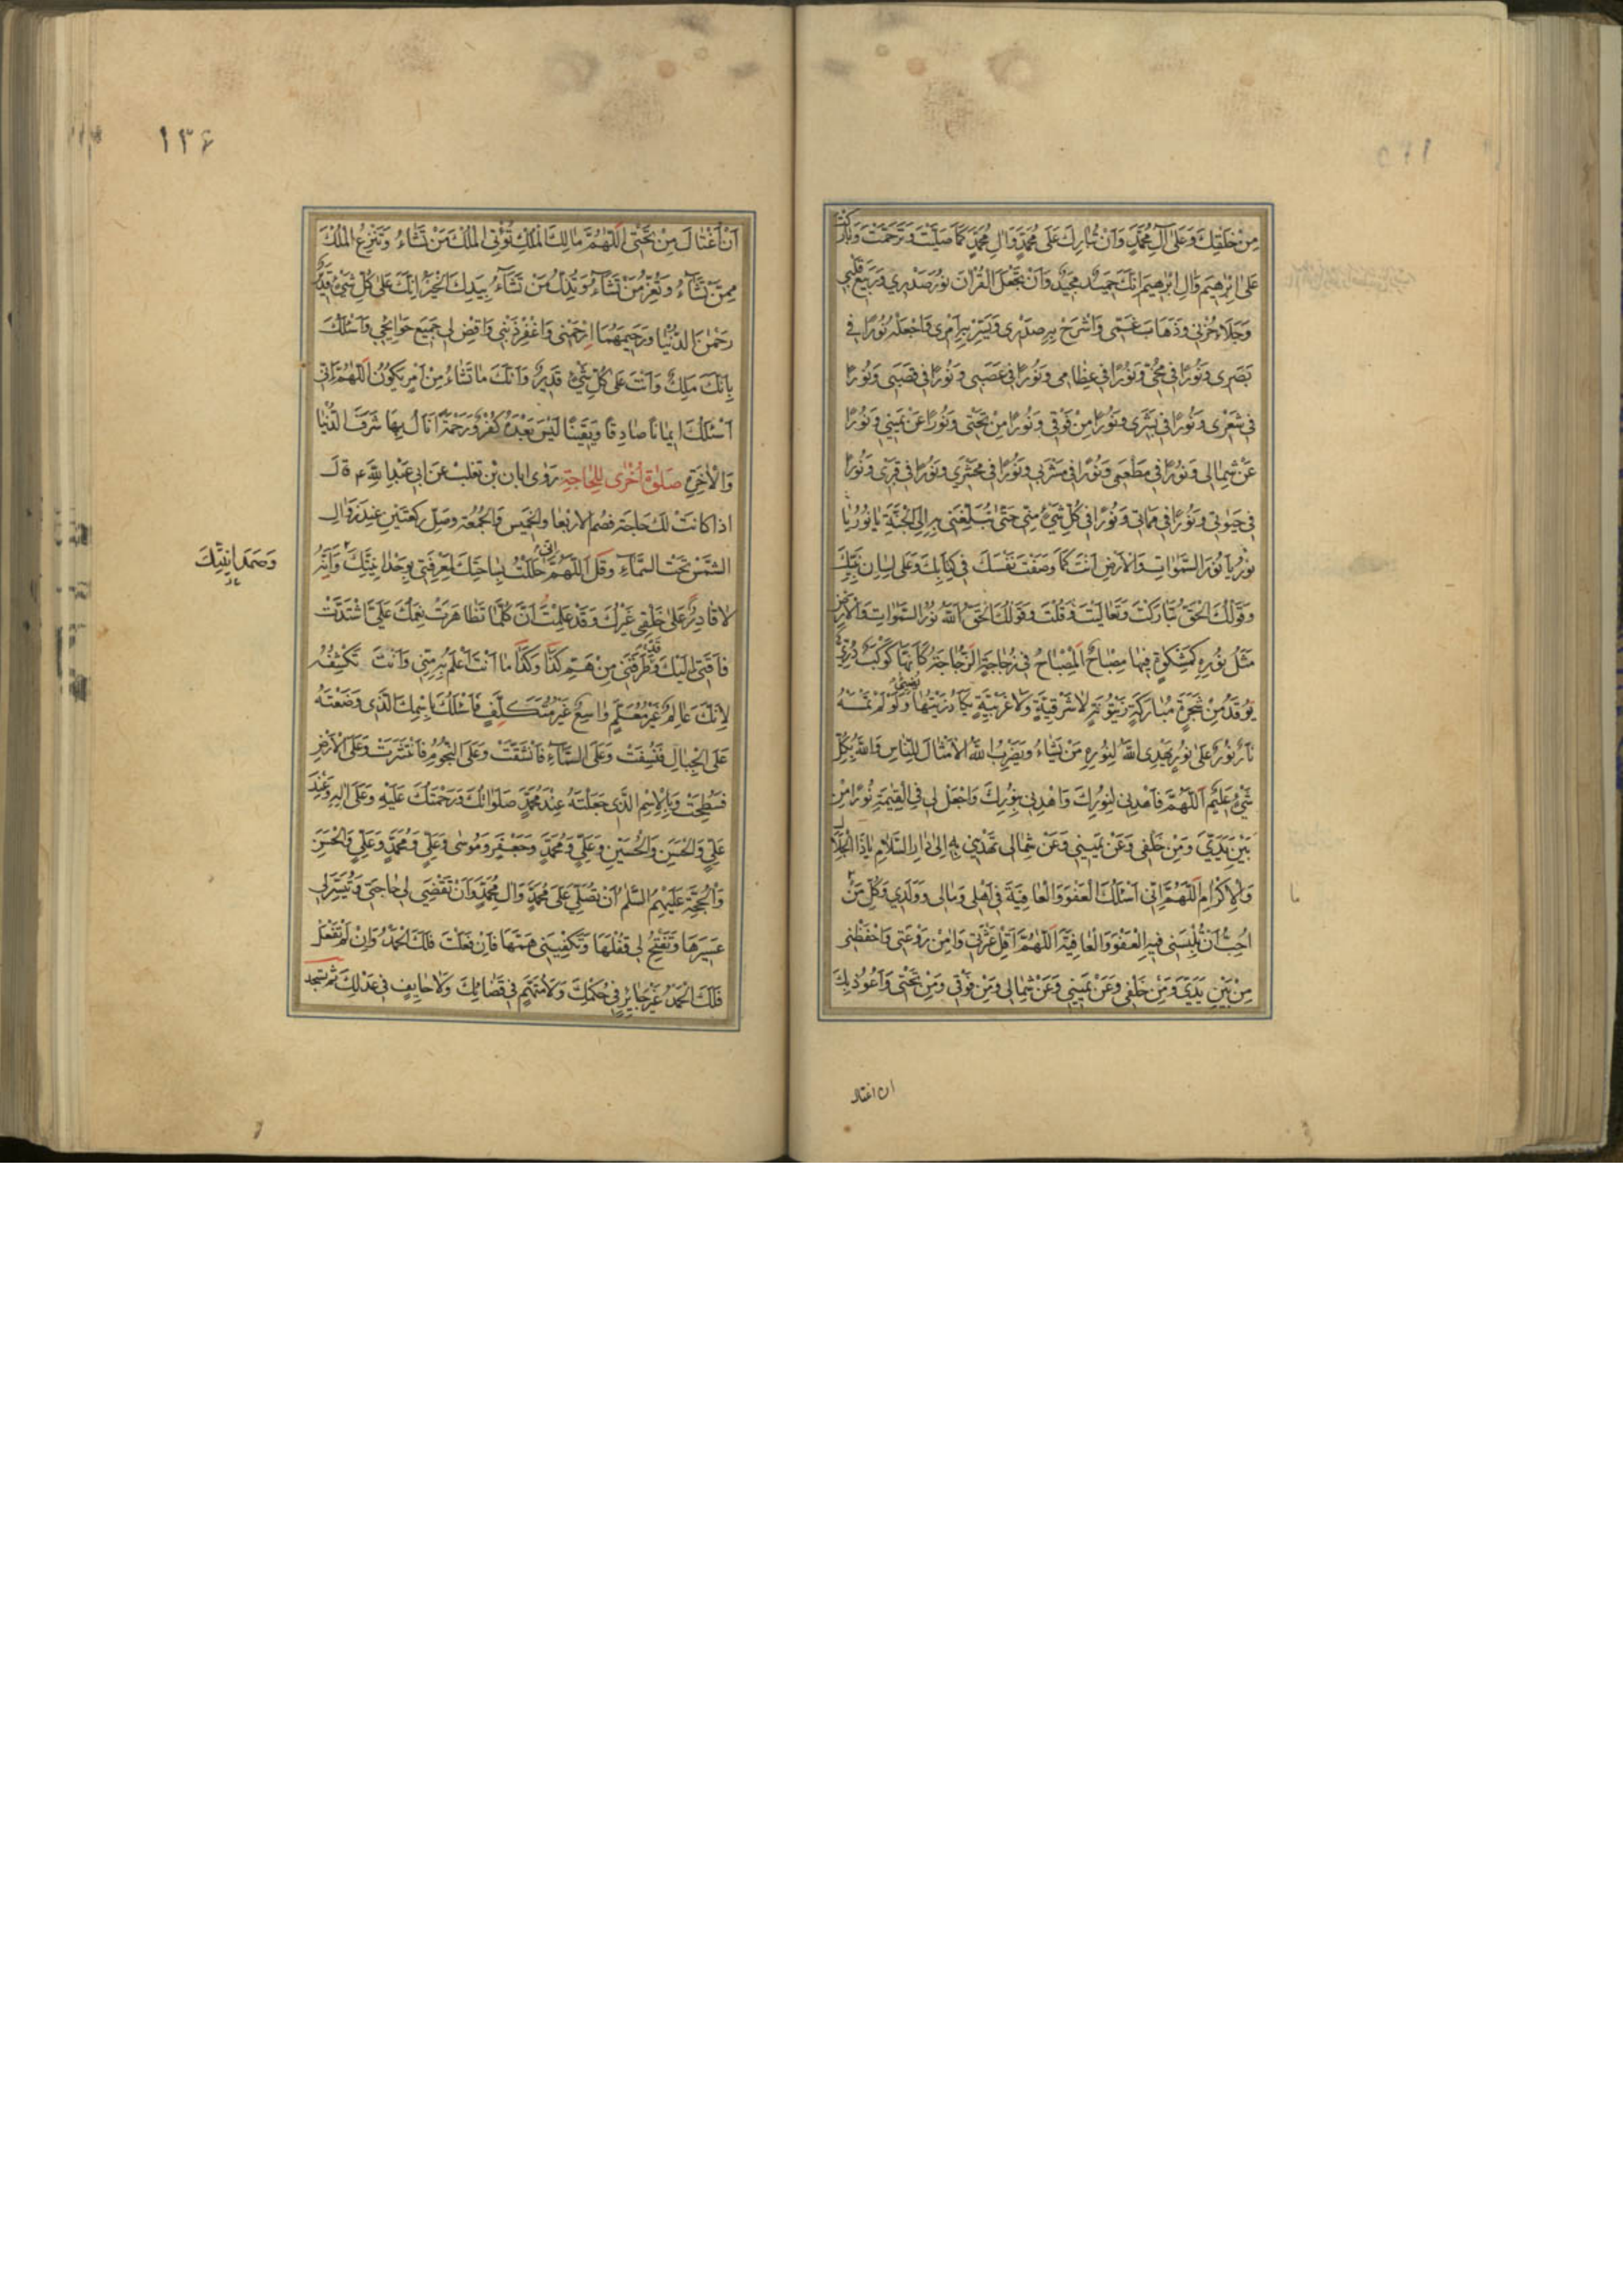 مِنْ خَلْقِكَ وَعَلىٰ آلِ مُحَمَّدٍ وَاَنْ تُبارِكَ عَلىٰ مُحَمَّدٍ وَآلِ مُحَمَّدٍ كَمَا صَلَّيْتَ وَتَرَحَّمْتَ وَبارَكْتَ
عَلىٰ اِبْرٰهيمَ وَآلِ اِبْرٰهيمَ اِنَّكَ حَميدٌ مَجيدٌ وَاَنْ تَجْعَلَ الْقُرْآنَ نُورَ صَدْري وَرَبيعَ قَلْبي
وَجَلَاءَ حُزْني وَذَهَابَ غَمّي وَاشْرَحْ بِهِ صَدْري وَيَسِّرْ بِهِ اَمْري وَاجْعَلْهُ نُورًا في
بَصَري وَنُورًا في مُخّي وَنُورًا في عِظامي وَنُورًا في عَصَبي وَنُورًا في قَصَبي وَنُورًا
في شَعْري وَنُورًا في بَشَري وَنُورًا مِنْ فَوْقي وَنُورًا مِنْ تَحْتي وَنُورًا عَنْ يَميني وَنُورًا
عَنْ شِمالي وَنُورًا في مَطْعَمي وَنُورًا في مَشْرَبي وَنُورًا في مَحْشَري وَنُورًا في قَبْري وَنُورًا
في حَيٰوتي وَنُورًا في مَماتي وَنُورًا في كُلِّ شَيْءٍ مِنّي حَتّىٰ تُبَلِّغَني بِهِ اِلَى الْجَنَّةِ يا نُورُ يا
نُورُ يا نُورَ السَّمٰوٰاتِ وَالْاَرْضِ اَنْتَ كَمَا وَصَفْتَ نَفْسَكَ في كِتابِكَ وَعَلىٰ لِسانِ نَبِيِّكَ
وَقَوْلُكَ الْحَقُّ تَبارَكْتَ وَتَعالَيْتَ وَقُلْتَ وَقَوْلُكَ الْحَقُّ اَللهُ نُورُ السَّمٰوٰاتِ وَالْاَرْضِ
مَثَلُ نُورِهِ كَمِشْكٰوةٍ فيها مِصْباحٌ اَلْمِصْباحُ في زُجاجَةٍ اَلزُّجاجَةُ كَاَنَّها كَوْكَبٌ دُرِّيٌّ
يُوقَدُ مِنْ شَجَرَةٍ مُبارَكَةٍ زَيْتُونَةٍ لا شَرْقِيَّةٍ وَلا غَرْبِيَّةٍ يَكادُ زَيْتُها يُضيءُ وَلَوْ لَمْ تَمْسَسْهُ
نارٌ نُورٌ عَلىٰ نُورٍ يَهْدِي اللهُ لِنُورِهِ مَنْ يَشاءُ وَيَضْرِبُ اللهُ الْاَمْثالَ لِلنّاسِ وَاللهُ بِكُلِّ
شَيْءٍ عَليمٌ اَللّٰهُمَّ فَاهْدِني لِنُورِكَ وَاهْدِني بِنُورِكَ وَاجْعَلْ لي فِي الْقِيٰمَةِ نُورًا مِنْ
بَيْنِ يَدَيَّ وَمِنْ خَلْفي وَعَنْ يَميني وَعَنْ شِمالي تَهْدي بِهِ اِلىٰ دارِ السَّلامِ يا ذَا الْجَلالِ
وَالْاِكْرامِ اَللّٰهُمَّ اِنّي اَسْئَلُكَ الْعَفْوَ وَالْعافِيَةَ في اَهْلي وَمالي وَوَلَدي وَكُلِّ مَنْ
اُحِبُّ اَنْ تُلْبِسَني فيهِ الْعَفْوَ وَالْعافِيَةَ اَللّٰهُمَّ اَقِلْ عَثْرَتي وَآمِنْ رَوْعَتي وَاحْفَظْني
مِنْ بَيْنِ يَدَيَّ وَمِنْ خَلْفي وَعَنْ يَميني وَعَنْ شِمالي وَمِنْ فَوْقي وَمِنْ تَحْتي وَاَعُوذُ بِكَ
ان اغتال
١٣۶
اَنْ اُغْتالَ مِنْ تَحْتي اَللّٰهُمَّ مالِكَ الْمُلْكِ تُؤْتِي الْمُلْكَ مَنْ تَشاءُ وَتَنْزِعُ الْمُلْكَ
مِمَّنْ تَشاءُ وَتُعِزُّ مَنْ تَشاءُ وَتُذِلُّ مَنْ تَشاءُ بِيَدِكَ الْخَيْرُ اِنَّكَ عَلىٰ كُلِّ شَيْءٍ قَديرٌ
رَحْمٰنَ الدُّنْيا وَرَحيمَهُما اِرْحَمْني وَاغْفِرْ ذَنْبي وَاقْضِ لي جَميعَ حَوائِجي وَاَسْئَلُكَ
بِاَنَّكَ مَلِكٌ وَاَنْتَ عَلىٰ كُلِّ شَيْءٍ قَديرٌ وَاَنَّكَ ما تَشاءُ مِنْ اَمْرٍ يَكُونُ اَللّٰهُمَّ اِنّي
اَسْئَلُكَ ايمانًا صادِقًا وَيَقينًا لَيْسَ بَعْدَهُ كُفْرٌ وَرَحْمَةً اَنالُ بِها شَرَفَ الدُّنْيا
وَالْآخِرَةِ صَلٰوةٌ اُخْرىٰ لِلْحاجَةِ رَوىٰ ابان بْن تغلب عَنْ ابي عَبْدِ اللهِ ع قالَ
اذا كانَتْ لَكَ حاجَة فصُم الاربعا والخميس وَالجُمُعَة وصلّ ركعتَيْن عِنْدَ زَوالِ
الشمْس تحْت السَّماءِ وَقُل اَللّٰهُمَّ اِنّي حَلَلْتُ بِساحَتِكَ لِمَعْرِفَتي بِوَحْدانِيَّتِكَ وَاَنَّهُ
وَصَمَدانِيَّتِكَ
لا قادِرٌ عَلىٰ خَلْقي غَيْرُكَ وَقَدْ عَلِمْتُ اَنَّ كُلَّما تَظاهَرَتْ نِعَمُكَ عَلَيَّ اشْتَدَّتْ
فاقَتي اِلَيْكَ وَقَدْ طَرَقَني مِنْ هَمّ كَذا وَكَذا ما اَنْتَ اَعْلَمُ بِهِ مِنّي وَاَنْتَ تَكْشِفُهُ
لِاَنَّكَ عالِمٌ غَيْرُ مُعَلَّمٍ واسِعٌ غَيْرُ مُتَكَلِّفٍ فَاَسْئَلُكَ بِاسْمِكَ الَّذي وَضَعْتَهُ
عَلَى الْجِبالِ فَنُسِفَتْ وَعَلَى السَّماءِ فَانْشَقَّتْ وَعَلَى النُّجُومِ فَانْتَشَرَتْ وَعَلَى الْاَرْضِ
فَسُطِحَتْ وَبِالْاِسْمِ الَّذي جَعَلْتَهُ عِنْدَ مُحَمَّدٍ صَلَواتُكَ وَرَحْمَتُكَ عَلَيْهِ وَعَلىٰ آلِهِ وَعِنْدَ
عَلِيٍّ وَالْحَسَنِ وَالْحُسَيْنِ وَعَلِيٍّ وَمُحَمَّدٍ وَجَعْفَرٍ وَمُوسىٰ وَعَلِيٍّ وَمُحَمَّدٍ وَعَلِيٍّ وَالْحَسَنِ
وَالْحُجَّةِ عَلَيْهِمُ السَّلٰمُ اَنْ تُصَلِّيَ عَلىٰ مُحَمَّدٍ وَآلِ مُحَمَّدٍ وَاَنْ تَقْضِيَ لي حاجَتي وَتُيَسِّرَ لي
عَسيرَها وَتَفْتَحَ لي قُفْلَها وَتَكْفِيَني هَمَّها فَاِنْ فَعَلْتَ فَلَكَ الْحَمْدُ وَاِنْ لَمْ تَفْعَلْ
فَلَكَ الْحَمْدُ غَيْرَ جائِرٍ في حُكْمِكَ وَلا مُتَّهَمٍ في قَضائِكَ وَلا حائِفٍ في عَدْلِكَ ثم تسجد